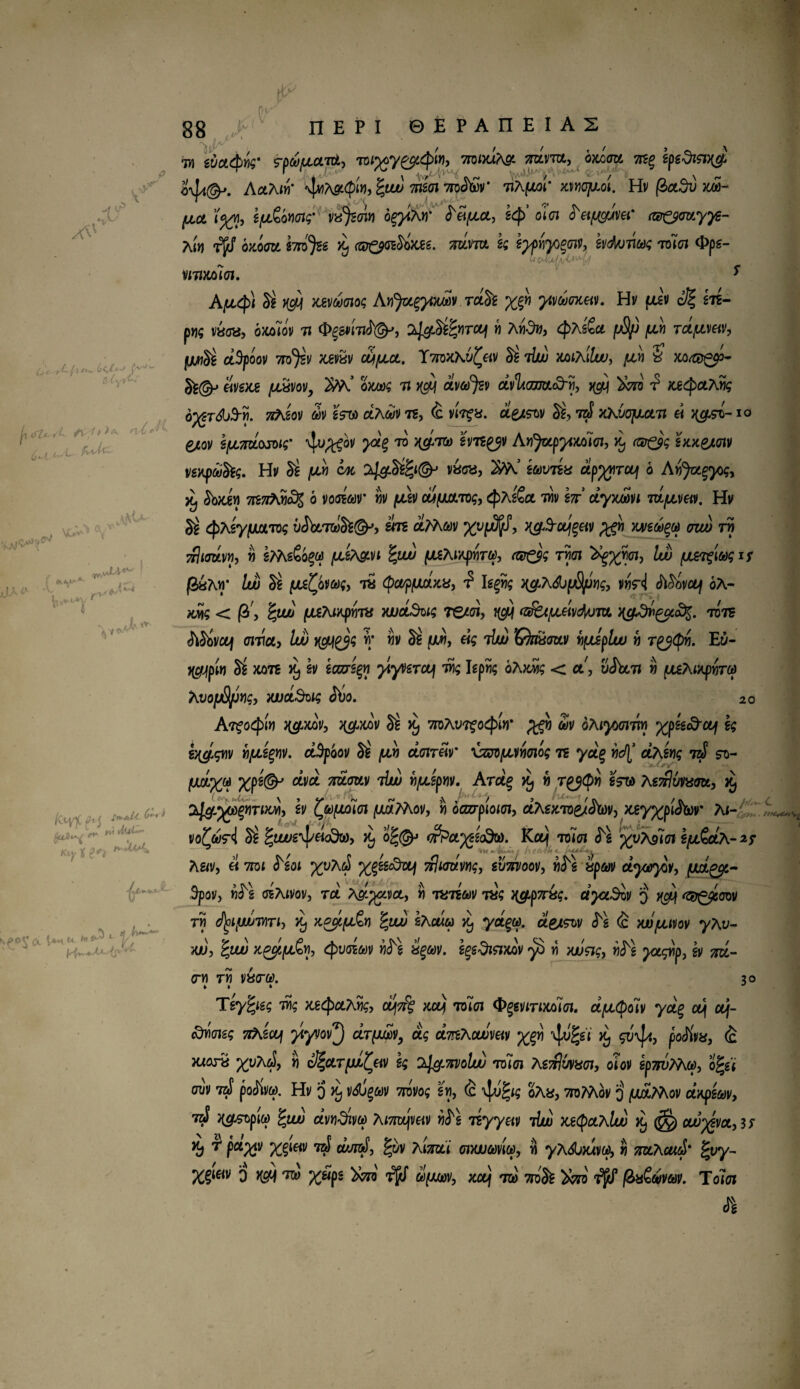 88 ΠΕΡΙ ΘΕΡΑΠΕΙΑΣ
τη εὐαφής· στρώματα, τοιχογραφίη, ποικίλα πάντα, ὁκόσα περ ἐρεθιστικὰ
ὄψιος. Λαλιὴ· ψηλαφίη, ξὺν πᾶσι ποδῶν· τιλμοί· κνησμοί. Ἢν βαθὺ κῶ-
μα ἴσχῃ, ἐμβόησις· νουθεσίη ὀργίλη· δεῖμα, ἐφ' οἷσι δειμαίνει· προσαγγε-
λίη τῶν ὁκόσα ἐπόθεε καὶ προσεδόκεε. πάντα ἐς ἐγρήγορσιν, ἐναντίως τοῖσι Φρε-
νιτικοῖσι. 5
Ἀμφὶ δὲ καὶ κενώσιος Ληθαργικῶν τάδε χρὴ γινώσκειν. Ἢν μὲν ἐξ ἑτέ-
ρης νούσου, ὁκοῖον τι Φρενίτιδος, διαδέξηται ἡ λήθη, φλέβα μὲν μὴ τάμνειν,
μηδὲ ἀθρόον ποθὲν κενοῦν αἷμα. Ὑποκλύζειν δὲ τὴν κοιλίην, μὴ τοῦ κοπρώ-
δεος εἵνεκε μοῦνον, ἀλλ' ὅκως τι καὶ ἄνωθεν ἀντισπασθῇ, καὶ ἀπὸ τῆς κεφαλῆς
ὀχετευθῇ. πλέον ὦν ἔστω ἁλῶν τε, καὶ νίτρου. ἄριστον δὲ, τῷ κλύσματι εἰ καστο- 10
ρίον ἐμπάσσοις· ψυχρὸν γὰρ τὸ κάτω ἔντερον Ληθαργικοῖσι, καὶ πρὸς ἔκκρισιν
νεκρῶδες. Ἢν δὲ μὴ ἐκ διαδέξιος νούσου, ἀλλ' ἑωυτέου ἄρχηται ὁ Λήθαργος,
καὶ δοκέῃ πεπλῆσθαι ὁ νοσέων· ἢν μὲν αἵματος, φλέβα τὴν ἐπ' ἀγκῶνι τάμνειν. Ἢν
δὲ φλέγματος ὑδατώδεος, εἴτε ἄλλων χυμῶν, καθαίρειν χρὴ κνεώρῳ σὺν τῇ
πτισάνῃ, ἢ ἐλλεβόρῳ μέλανι ξὺν μελικρήτῳ, πρὸς τῇσι ἀρχῇσι, ἢν μετρίως 15
βούλῃ· ἢν δὲ μεζόνως, τοῦ φαρμάκου, τῆς Ἱερῆς καλευμένης, νήστι διδόναι ὁλ-
κῆς < β', ξὺν μελικρήτου κυάθοις τρισὶ, καὶ περιμείναντα καθήρασθαι. τότε
διδόναι σιτία, ἢν καιρὸς ᾖ· ἢν δὲ μὴ, εἰς τὴν ἐπιοῦσαν ἡμέρην ἡ τροφή. Εὐ-
καιρίη δέ κοτε καὶ ἐν ἑσπέρῃ γίγνεται τῆς Ἱερῆς ὁλκῆς < α', ὕδατι ἢ μελικρήτῳ
λυομένης, κυάθοις δύο. 20
Ἀτροφίη κακὸν, κακὸν δὲ καὶ πολυτροφίη· χρὴ ὦν ὀλιγοσιτίῃ χρέεσθαι ἐς
ἑκάστην ἡμέρην. ἀθρόον δὲ μὴ ἀσιτεῖν· ὑπομνήσιός τε γὰρ ἠδ' ἀλέης τῷ στο-
μάχῳ χρέος ἀνὰ πᾶσαν τὴν ἡμέρην. Ἀτὰρ καὶ ἡ τροφὴ ἔστω λεπτύνουσα, καὶ
διαχωρητικὴ, ἐν ζωμοῖσι μᾶλλον, ἢ ὀσπρίοισι, ἀλεκτορίδων, κεγχρίδων· λι-
νοζώστι δὲ ξυνεψείσθω, καὶ ὄξος παραχεέσθω. Καὶ τοῖσι δὲ χυλοῖσι ἐμβάλ- 25
λειν, εἴ ποι δέοι χυλῷ χρέεσθαι πτισάνης, εὔπνοον, ἠδὲ οὔρων ἀγωγὸν, μάρα-
θρον, ἠδὲ σέλινον, τὰ λάχανα, ἢ τουτέων τοὺς καρπούς. ἀγαθὸν δὲ καὶ πράσον
τῇ δριμύτητι, καὶ κράμβη ξὺν ἐλαίῳ καὶ γάρῳ. ἄριστον δὲ καὶ κύμινον γλυ-
κὺ, ξὺν κράμβῃ, φυσέων ἠδὲ οὔρων. ἐρεθιστικὸν γὰρ ἡ κύστις, ἠδὲ γαστὴρ, ἐν πά-
σῃ τῇ νούσῳ. 30
Τέγξιες τῆς κεφαλῆς, αἵπερ καὶ τοῖσι Φρενιτικοῖσι. ἀμφοῖν γὰρ αἱ αἰ-
σθήσιες πλέαι γίγνονται ἀτμῶν, ἃς ἀπελαύνειν χρὴ ψύξει καὶ στύψι, ῥοδίνου, καὶ
κισσοῦ χυλῷ, ἢ ἐξατμίζειν ἐς διαπνοὴν τοῖσι λεπτύνουσι, οἷον ἑρπύλλῳ, ὄξει
σὺν τῷ ῥοδίνῳ. Ἢν δὲ καὶ νεύρων πόνος ἔῃ, καὶ ψύξις ὅλου, πολλὸν δὲ μᾶλλον ἀκρέων,
τῷ καστορίῳ ξὺν ἀνηθίνῳ λιπαίνειν ἠδὲ τέγγειν τὴν κεφαλὴν καὶ τὸν αὐχένα, 35
καὶ τὴν ῥάχιν χρίειν τῷ αὐτῷ, ξὺν λίπαϊ σικυωνίῳ, ἢ γλευκίνῳ, ἢ παλαιῷ· ξυγ-
χρίειν δὲ καὶ τὼ χεῖρε ἀπὸ τῶν ὤμων, καὶ τὼ πόδε ἀπὸ τῶν βουβώνων. Τοῖσι
δὲ